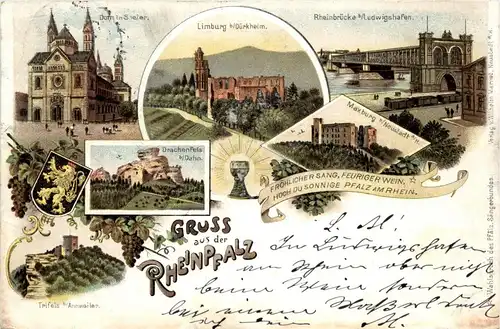 Dom in Speier.
Limburg b/Dürkheim.
Rheinbrücke b/Ludwigshafen.
Drachenfels
b/Dahn.
Maxburg b/Neustadt a/H.
FRÖHLICHER SANG, FEURIGER WEIN,
HOCH DU SONNIGE PFALZ AM RHEIN.
GRUSS
aus der
RHEINPFALZ
Trifels b/Annweiler.
L. M!
In Ludwigshafen
am Rhein aber nicht
beim Wein sondern
bei einem